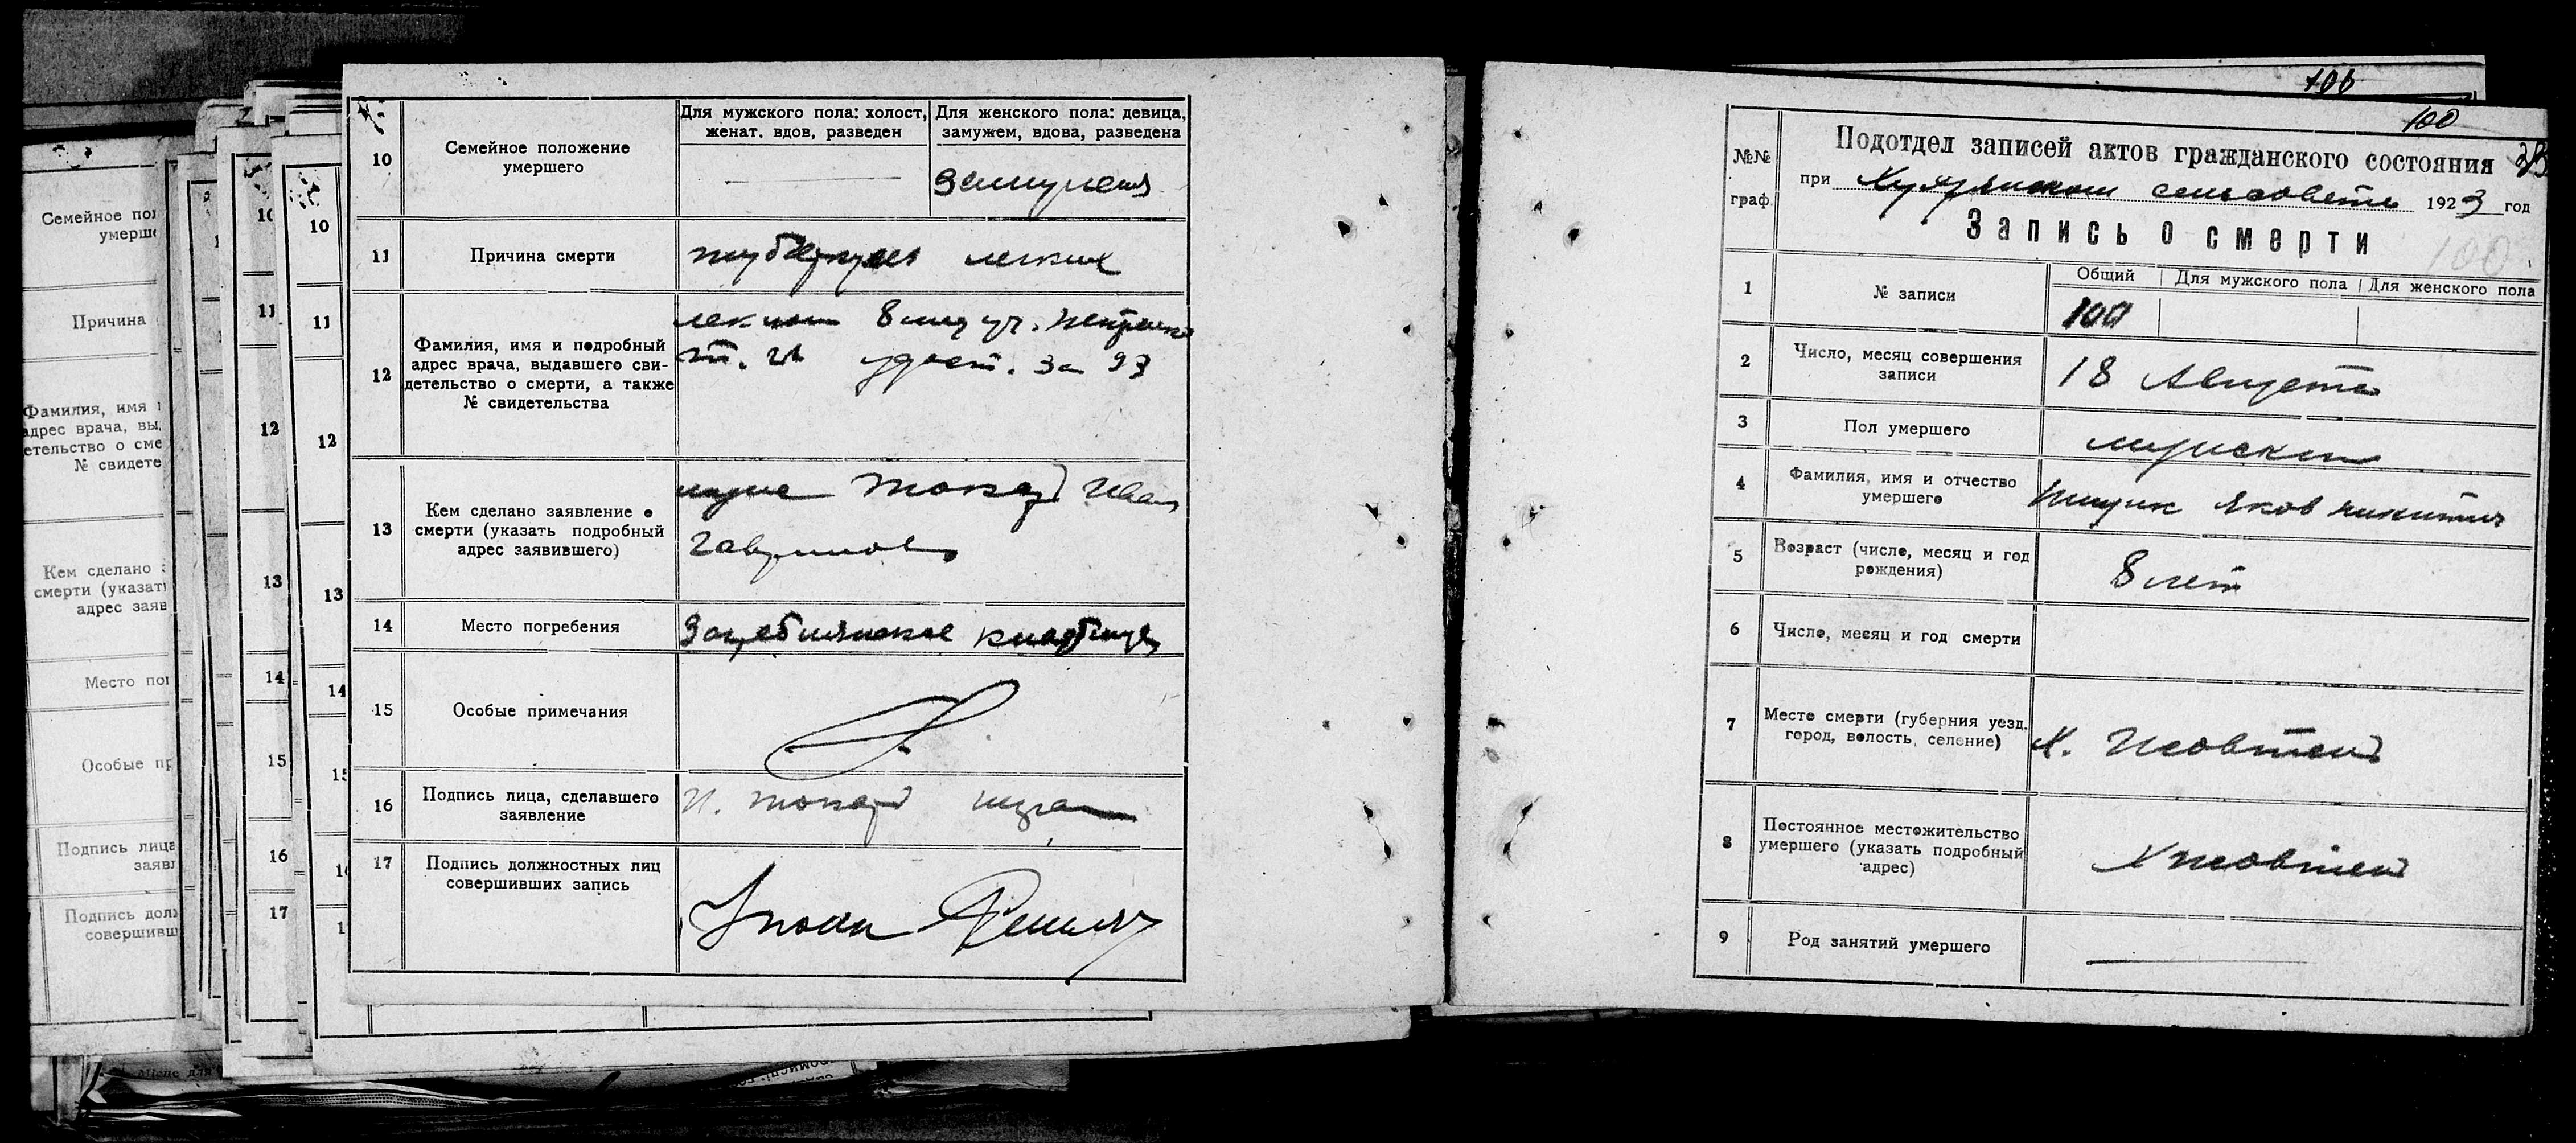 Семейное пол
умерше
Причина
Фамилия, имя и
адрес врача, вы
етельство о сме
№ свидете
Кем сделано з
смерти (указать
адрес заяв
Место пог
Особые пр
Подпись лица
заявл
Подпись долж
совершивш
10
11
12
13
14
15
16
17
10
11
12
13
14
15
16
10
Семейное положение
умершего
Для мужского пола: холост,
женат. вдов, разведен
Для женского пола: девица,
замужем, вдова, разведена
Замужем
11
Причина смерти
туберкулез легких
12
Фамилия, имя и подробный
адрес врача, выдавшего сви-
детельство о смерти, а также
№ свидетельства
лекпом 8 мед уч.
удост. за 93
13
Кем сделано заявление о
смерти (указать подробный
адрес заявившего)
муже Токар Иван
Гаврилов
14
Место погребения
кладбище
15
Особые примечания
16
Подпись лица, сделавшего
заявление
И. Токар
17
Подпись должностных лиц
совершивших запись
100
100
№№
граф.
Подотдел записей актов гражданского состояния
при сельсовете 1923 год
Запись о смерти
100
1
№ записи
Общий
Для мужского пола
Для женского пола
100
2
Число, месяц совершения
записи
18 Августа
3
Пол умершего
мужской
4
Фамилия, имя и отчество
умершего
Яков Никитич
5
Возраст (число, месяц и год
рождения)
8 лет
6
Число, месяц и год смерти
7
Место смерти (губерния уезд.
город, волость, селение)
Х. Жовтен
8
Постоянное местожительство
умершего (указать подробный
адрес)
Х Жовтен
9
Род занятий умершего